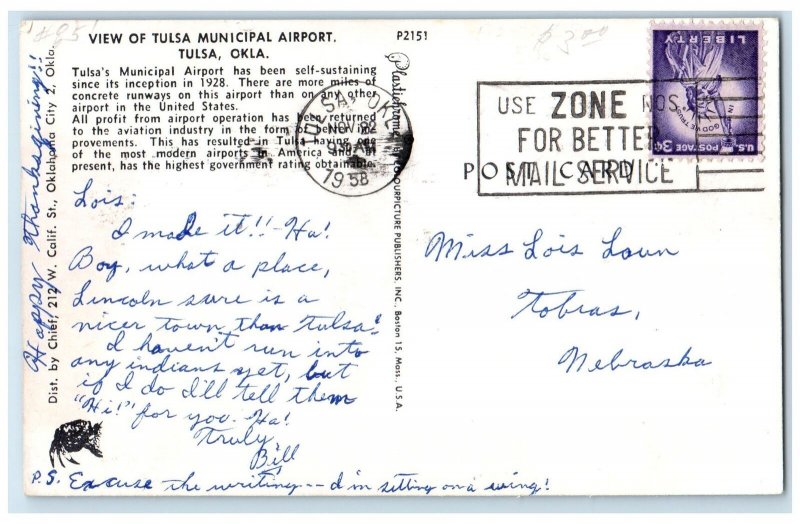 #25¹
$3.00
VIEW OF TULSA MUNICIPAL AIRPORT.
TULSA, OKLA.
P2151
Tulsa's Municipal Airport has been self-sustaining
since its inception in 1928. There are more miles of
concrete runways on this airport than on any other
airport in the United States.
All profit from airport operation has been returned
to the aviation industry in the form of better im-
provements. This has resulted in Tulsa having one
of the most modern airports in America and, at
present, has the highest government rating obtainable.
TULSA, OKLA.
NOV 22
AM
1958
USE ZONE NOS.
FOR BETTER
MAIL SERVICE
LIBERTY
IN GOD WE TRUST
U.S. POSTAGE 3¢
POST CARD
Lois:
I made it!! - Ha!
Boy, what a place,
Lincoln sure is a
nicer town than Tulsa!
I haven't run into
any indians yet, but
if I do I'll tell them
"Hi!" for you. Ha!
Truly,
Bill
P.S. Excuse the writing -- I'm sitting on a wing!
Happy Thanksgiving!!
Dist. by Chief, 212 W. Calif. St., Oklahoma City 2, Okla.
Plastichrome BY COLOURPICTURE PUBLISHERS, INC., Boston 15, Mass., U.S.A.
Miss Lois Loun
Tobias,
Nebraska